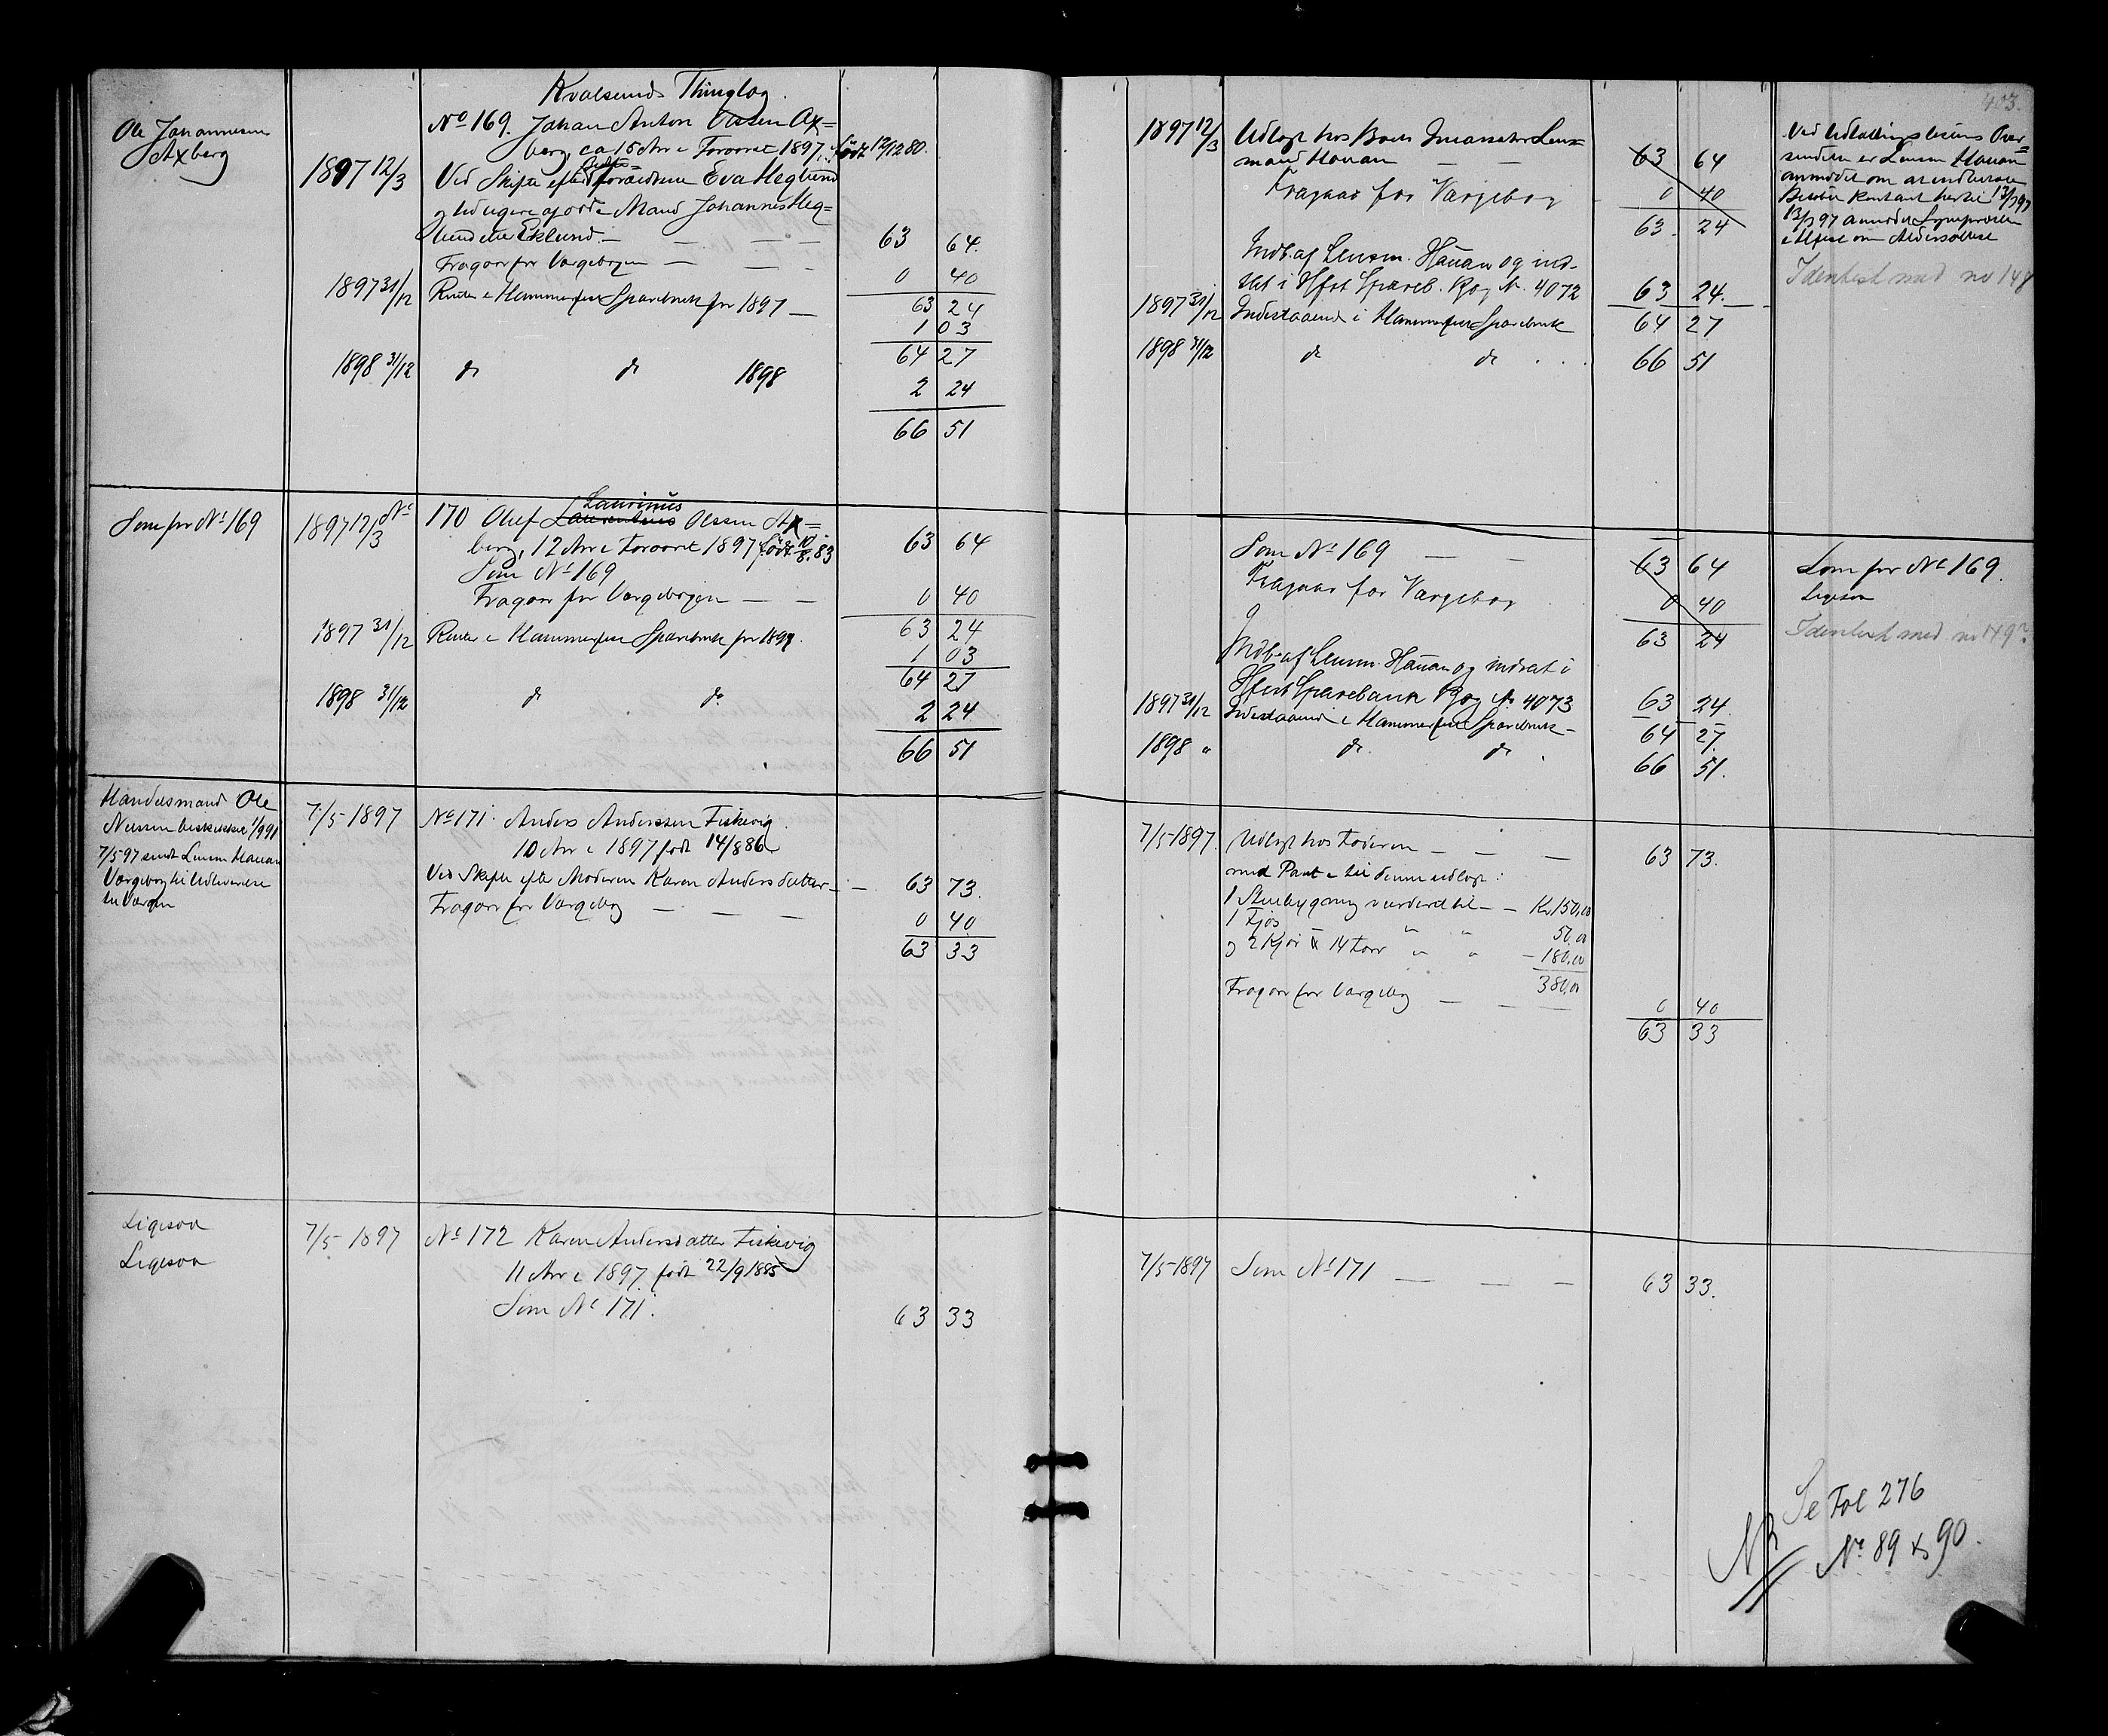 Kvalsunds Thinglag.
Ole Johannesen
Axberg
1897 12/3
No 169. Johan Anton Olsen Ax=
berg, ca 15 Aar i Foraaret 1897, født 12/12 80.
Ved Skifte efter Bedste=
forældrene Eva Heglund
og tidligere afdøde Mand Johannes Heg=
lund eller Eklund. — — — — 63 64.
Fragaar for Værgebogen — — — 0 40
63 24
1897 31/12 Renter i Hammerfest Sparebank for 1897 — 1 03
64 27
1898 31/12 do do 1898 2 24
66 51
Som for No 169
1897 12/3 No 170 Oluf Laurentius Laurinus Olssen Ax=
berg, 12 Aar i Foraaret 1897 født 10/8. 83 63 64
Som No 169
Fragaar for Værgebogen — — 0 40
63 24
1897 31/12 Renter i Hammerfest Sparebank for 1897. 1 03
64 27
1898 31/12 do do 2 24
66 51
Handelsmand Ole
Nilssen beskikket 1/9 91
7/5 97 sendt Lensm Hauan
Værgebog til Udleverelse
til Værgen
7/5 1897 No 171. Anders Anderssen Fiskevig.
10 Aar i 1897 født 14/8 86
Ved Skifte efter Moderen Karen Andersdatter — — 63 73.
Fragaar for Værgebog — — — 0 40
63 33
Ligesaa
Ligesaa
7/5 1897 No 172 Karen Andersdatter Fiskevig
11 Aar i 1897 født 22/9 1885
Som No 171. 63 33
403.
1897 12/3 Udlagt hos Boets Incassator Lens=
mand Hauan — — 63 64
Fragaar for Værgebog 0 40
63 24
Indb. af Lensm. Hauan og ind-
sat i Hfest Spareb. Bog No. 4072 63 24.
1897 31/12 Indestaaende i Hammerfest Sparebank 64 27
1898 31/12 do do 66 51
Ved Udlodningslistens Over=
sendelse er Lensm Hauan
anmodet om at indbetale
Beløbet kontant hertil 13/7 97
13/7 97 anmodet Sognepresten
i Alten om Aldersattest
Identisk med no 148
Som No 169 — — 63 64
Fragaar for Værgebog 0 40
63 24
Indb. af Lensm. Hauan og indsat i
Hfest Sparebank Bog No 4073 63 24.
1897 31/12 Indestaaende i Hammerfest Sparebank — 64 27.
1898 " do do 66 51.
Som for No 169.
Ligesaa
Identisk med no 149?
7/5 1897. Udlagt hos Faderen — — — 63 73.
med Pant i til denne udlagt:
1 Stuebygning vurderet til — — Kr 150,00
1 Fjøs " " 50,00
og 2 Kjør & 14 Faar " " — 180,00
380,00
Fragaar for Værgebog — — — 0 40
63 33
7/5 1897 Som No 171 — — — 63 33.
NB
Se Fol 276
No 89 & 90.